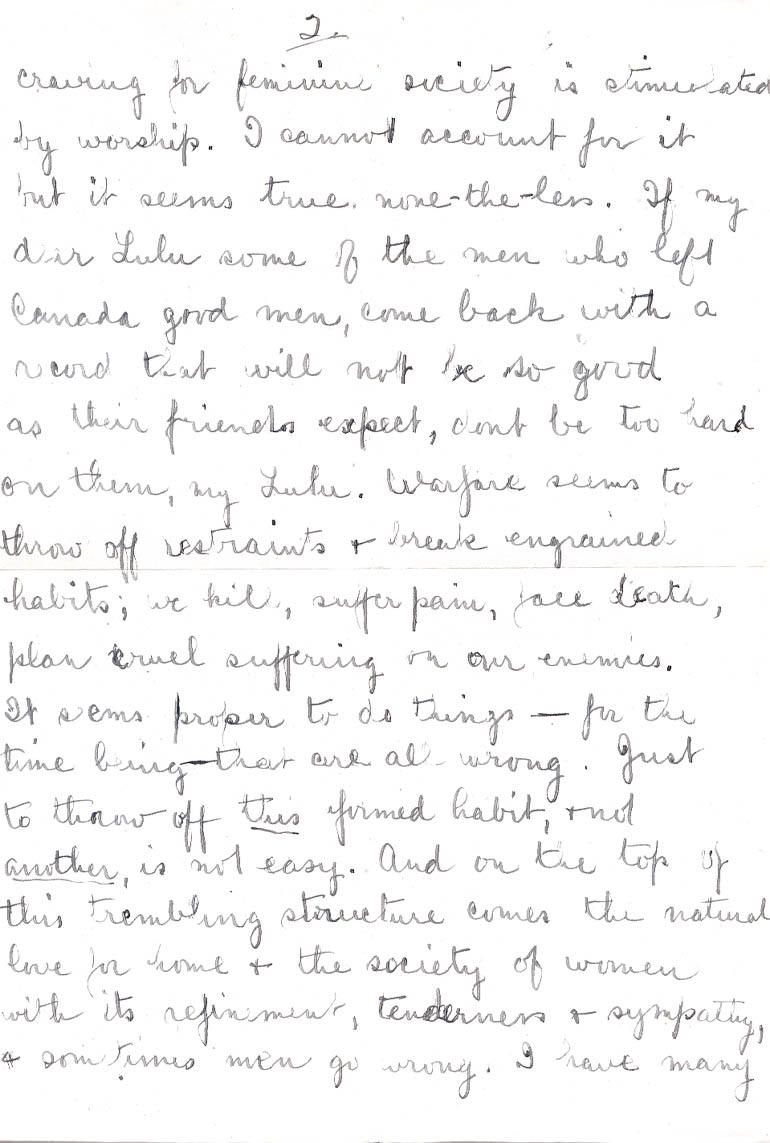 2.
craving for feminine society is stimulated
by worship. I cannot account for it
but it seems true. none-the-less. If my
dear Lulu some of the men who left
Canada good men, come back with a
record that will not be so good
as their friends expect, dont be too hard
on them, my Lulu. Warfare seems to
throw off restraints + break engrained
habits; we kill, suffer pain, face death,
plan cruel suffering on our enemies.
It seems proper to do things — for the
time being — that are all wrong. Just
to throw off this formed habit, + not
another, is not easy. And on the top of
this trembling structure comes the natural
love for home + the society of women
with its refinement, tenderness + sympathy,
+ sometimes men go wrong. I have many